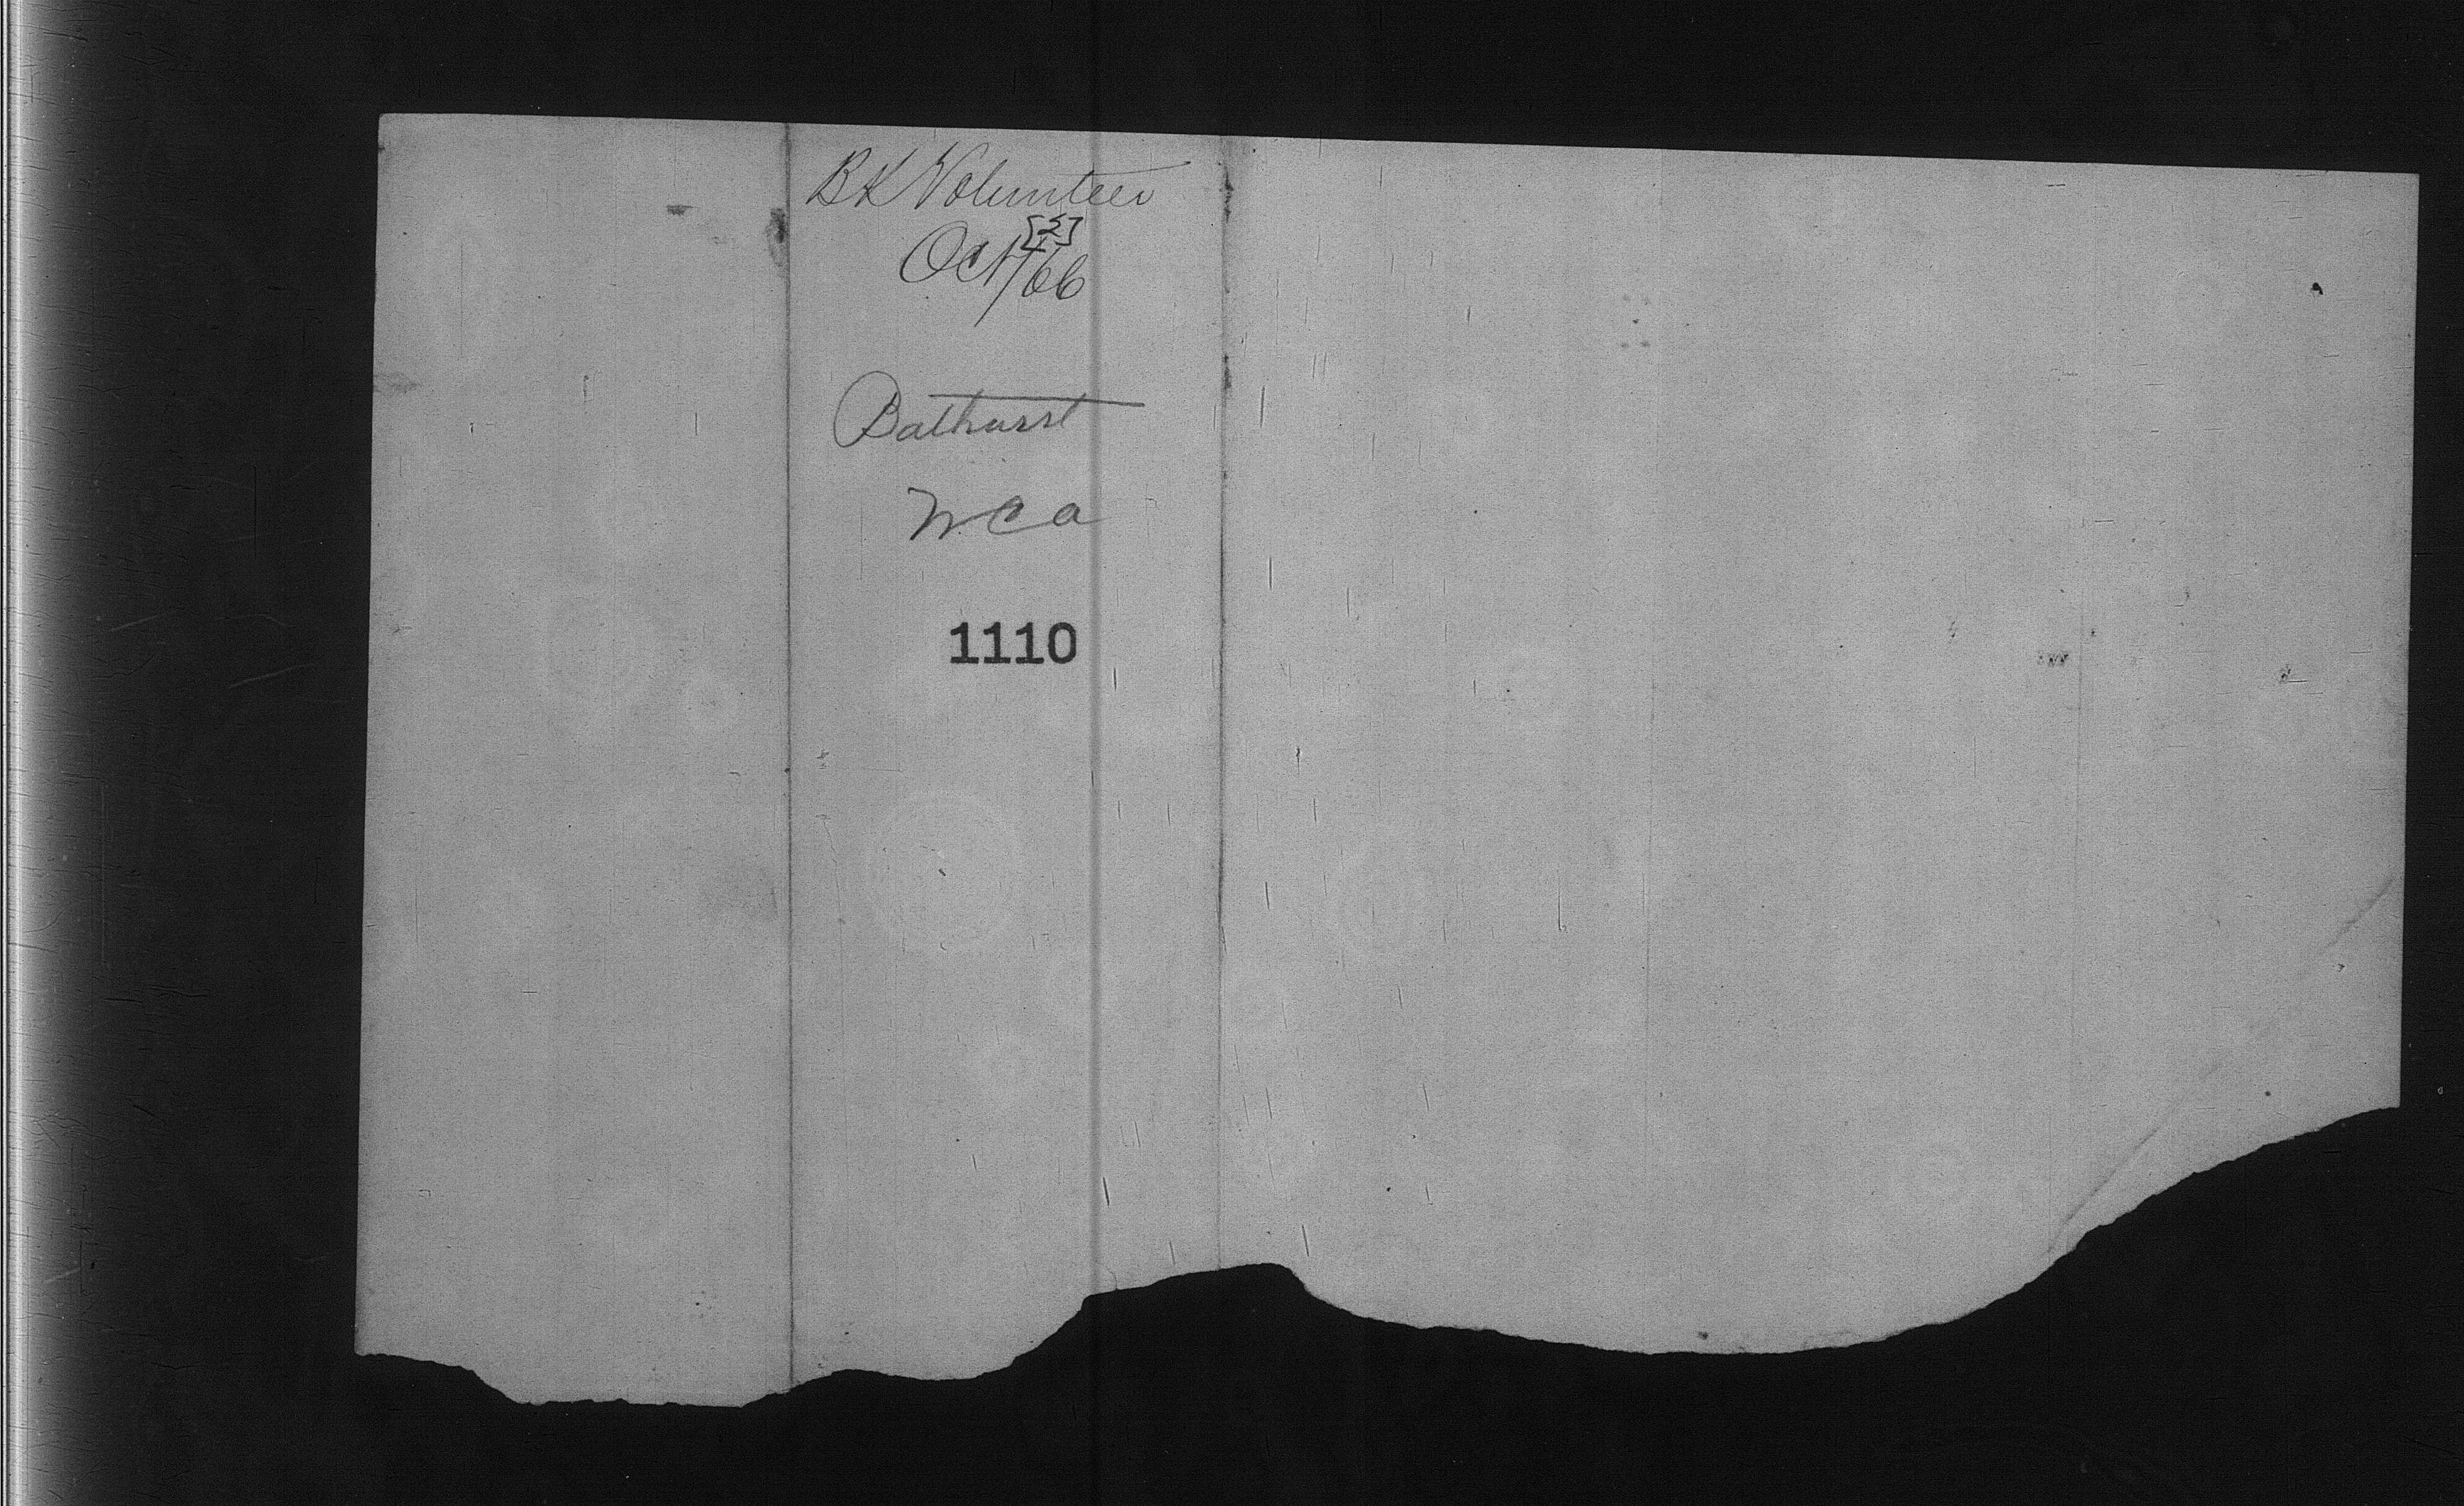 Bk Volunteer
[5]
Oct/66
Bathurst
WCA
1110